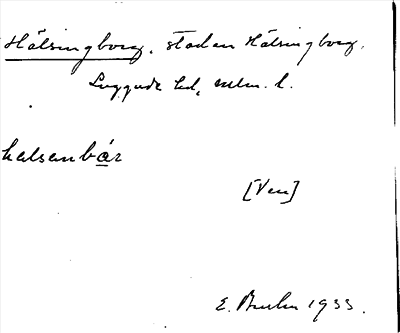 Hälsingborg, staden Hälsingborg.
Luggude hd, Mlm. l.
halsenbår
[Ven]
E. 1933.